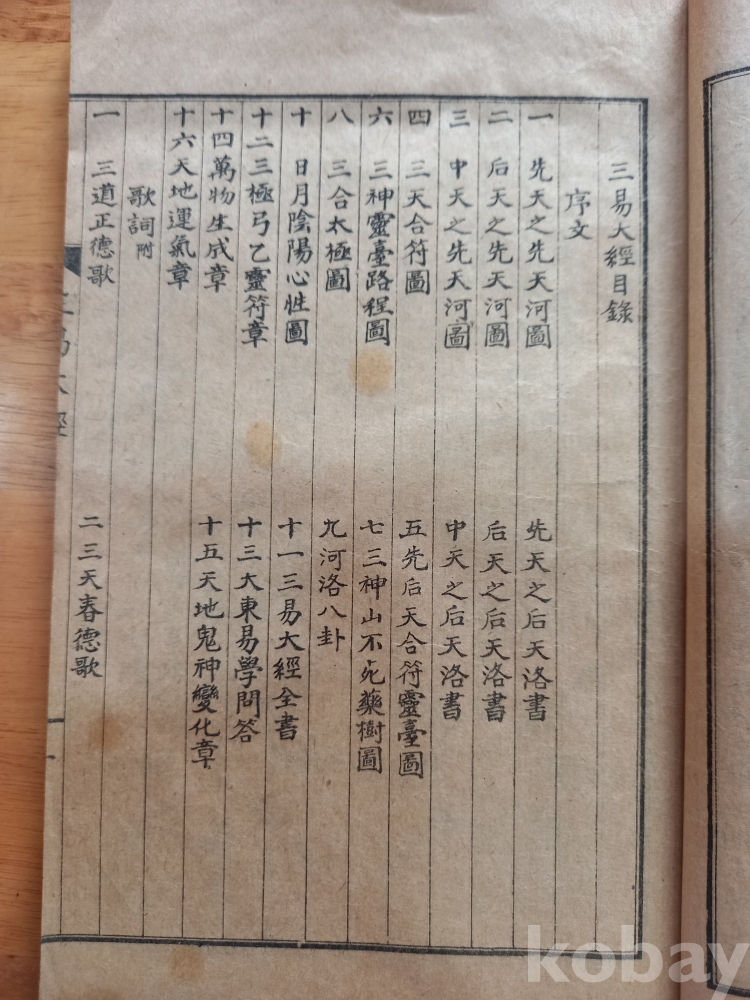 三易大經目錄
序文
一 先天之先天河圖 先天之后天洛書
二 后天之先天河圖 后天之后天洛書
三 中天之先天河圖 中天之后天洛書
四 三天合符圖 五 先后天合符靈臺圖
六 三神靈臺路程圖 七 三神山不死藥樹圖
八 三合太極圖 九 河洛八卦
十 日月陰陽心性圖 十一 三易大經全書
十二 三極弓乙靈符章 十三 大東易學問答
十四 萬物生成章 十五 天地鬼神變化章
十六 天地運氣章
歌詞 附
一 三道正德歌 二 三天春德歌
三易大經
一
kobay